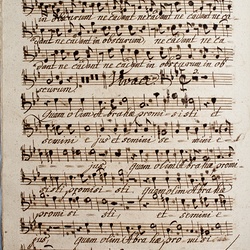 in obscurum ne cadant ne cadant ne cadant ne ca
dant ne cadant in obscurum, ne cadant ne ca
dant ne cadant ne cadant in obscurum ne cadant in ob
scurum.
Quam olim Abrahae promi- si- sti et
semini e- jus et semini se- mini e-
jus quam olim Abrahae promi-
sisti, promisi- sti, quam olim Abrahae
promi si- sti, et semini e-
jus, quam olim Abrahae, promisisti